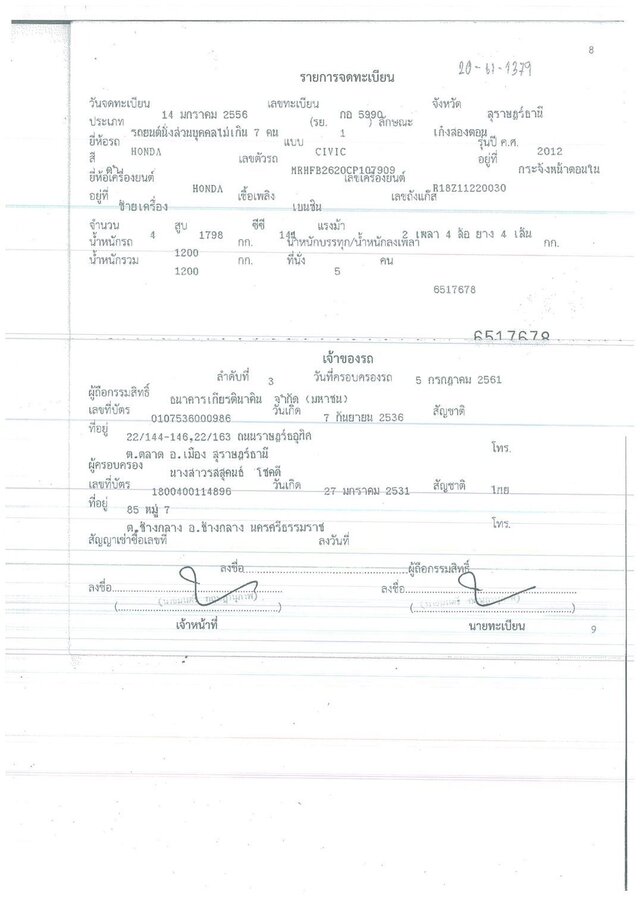 8
20-61-1379
รายการจดทะเบียน
วันจดทะเบียน 14 มกราคม 2556 เลขทะเบียน กอ 5990 จังหวัด สุราษฎร์ธานี
ประเภท รถยนต์นั่งส่วนบุคคลไม่เกิน 7 คน (รย. 1 ) ลักษณะ เก๋งสองตอน
ยี่ห้อรถ HONDA แบบ CIVIC รุ่นปี ค.ศ. 2012
สี เลขตัวรถ MRHFB2620CP107909 อยู่ที่ กระจังหน้าด้านใน
ยี่ห้อเครื่องยนต์ HONDA เลขเครื่องยนต์ R18Z11220030
อยู่ที่ ซ้ายเครื่อง เชื้อเพลิง เบนซิน เลขถังแก๊ส
จำนวน 4 สูบ 1798 ซีซี 141 แรงม้า 2 เพลา 4 ล้อ ยาง 4 เส้น
น้ำหนักรถ 1200 กก. น้ำหนักบรรทุก/น้ำหนักลงเพลา กก.
น้ำหนักรวม 1200 กก. ที่นั่ง 5 คน
6517678
6517678
เจ้าของรถ
ลำดับที่ 3 วันที่ครอบครองรถ 5 กรกฎาคม 2561
ผู้ถือกรรมสิทธิ์ ธนาคารเกียรตินาคิน จำกัด (มหาชน)
เลขที่บัตร 0107536000986 วันเกิด 7 กันยายน 2536 สัญชาติ
ที่อยู่ 22/144-146,22/163 ถนนราษฎร์อุทิศ
ต.ตลาด อ.เมือง สุราษฎร์ธานี โทร.
ผู้ครอบครอง นางสาวรสสุคนธ์ โชคดี
เลขที่บัตร 1800400114896 วันเกิด 27 มกราคม 2531 สัญชาติ ไทย
ที่อยู่ 85 หมู่ 7
ต.ช้างกลาง อ.ช้างกลาง นครศรีธรรมราช โทร.
สัญญาเช่าซื้อเลขที่ ลงวันที่
ลงชื่อ ผู้ถือกรรมสิทธิ์
ลงชื่อ ลงชื่อ
( ) ( )
เจ้าหน้าที่ นายทะเบียน
9